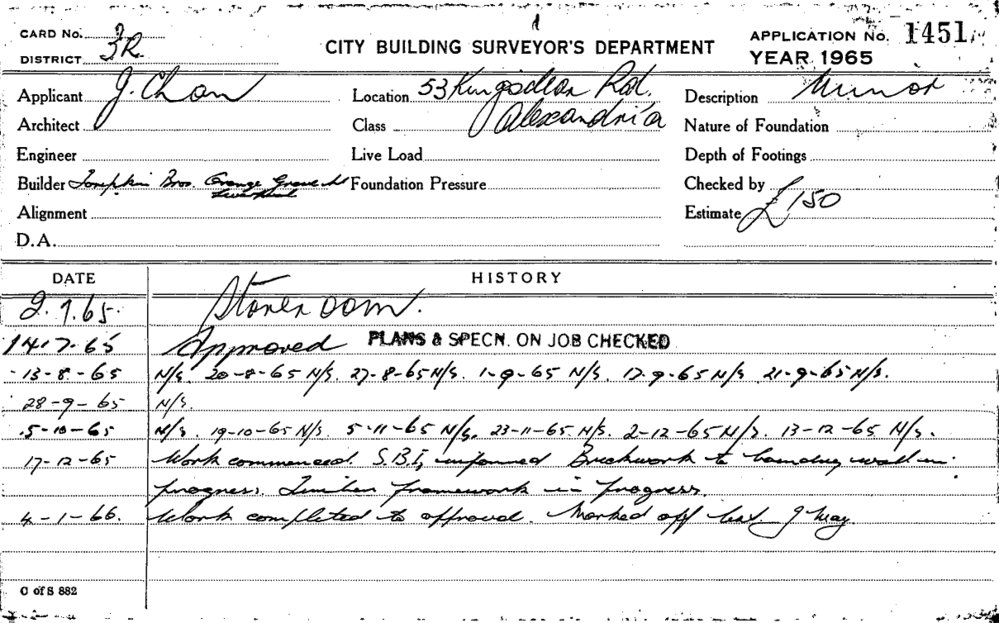 CARD No.
DISTRICT 3R
CITY BUILDING SURVEYOR'S DEPARTMENT
APPLICATION No. 1451
YEAR 1965
Applicant J. Chan
Location 53 Kingsclear Rd.
Alexandria
Description Minor
Architect
Class
Nature of Foundation
Engineer
Live Load
Depth of Footings
Builder Bros. Orange Grove
Foundation Pressure
Checked by
Alignment
Estimate £150
D.A.
DATE HISTORY
2.7.65. Storeroom.
14-7-65 Approved PLANS & SPECN. ON JOB CHECKED
13-8-65 N/S. 20-8-65 N/S. 27-8-65 N/S. 1-9-65 N/S. 17-9-65 N/S 21-9-65 N/S.
28-9-65 N/S.
5-10-65 N/S. 19-10-65 N/S. 5-11-65 N/S. 23-11-65 N/S. 2-12-65 N/S. 13-12-65 N/S.
17-12-65 Work commenced. S.B.I. informed Brickwork to boundary wall in
progress. Timber framework in progress.
4-1-66. Work completed to approval. Marked off J May
C of S 882